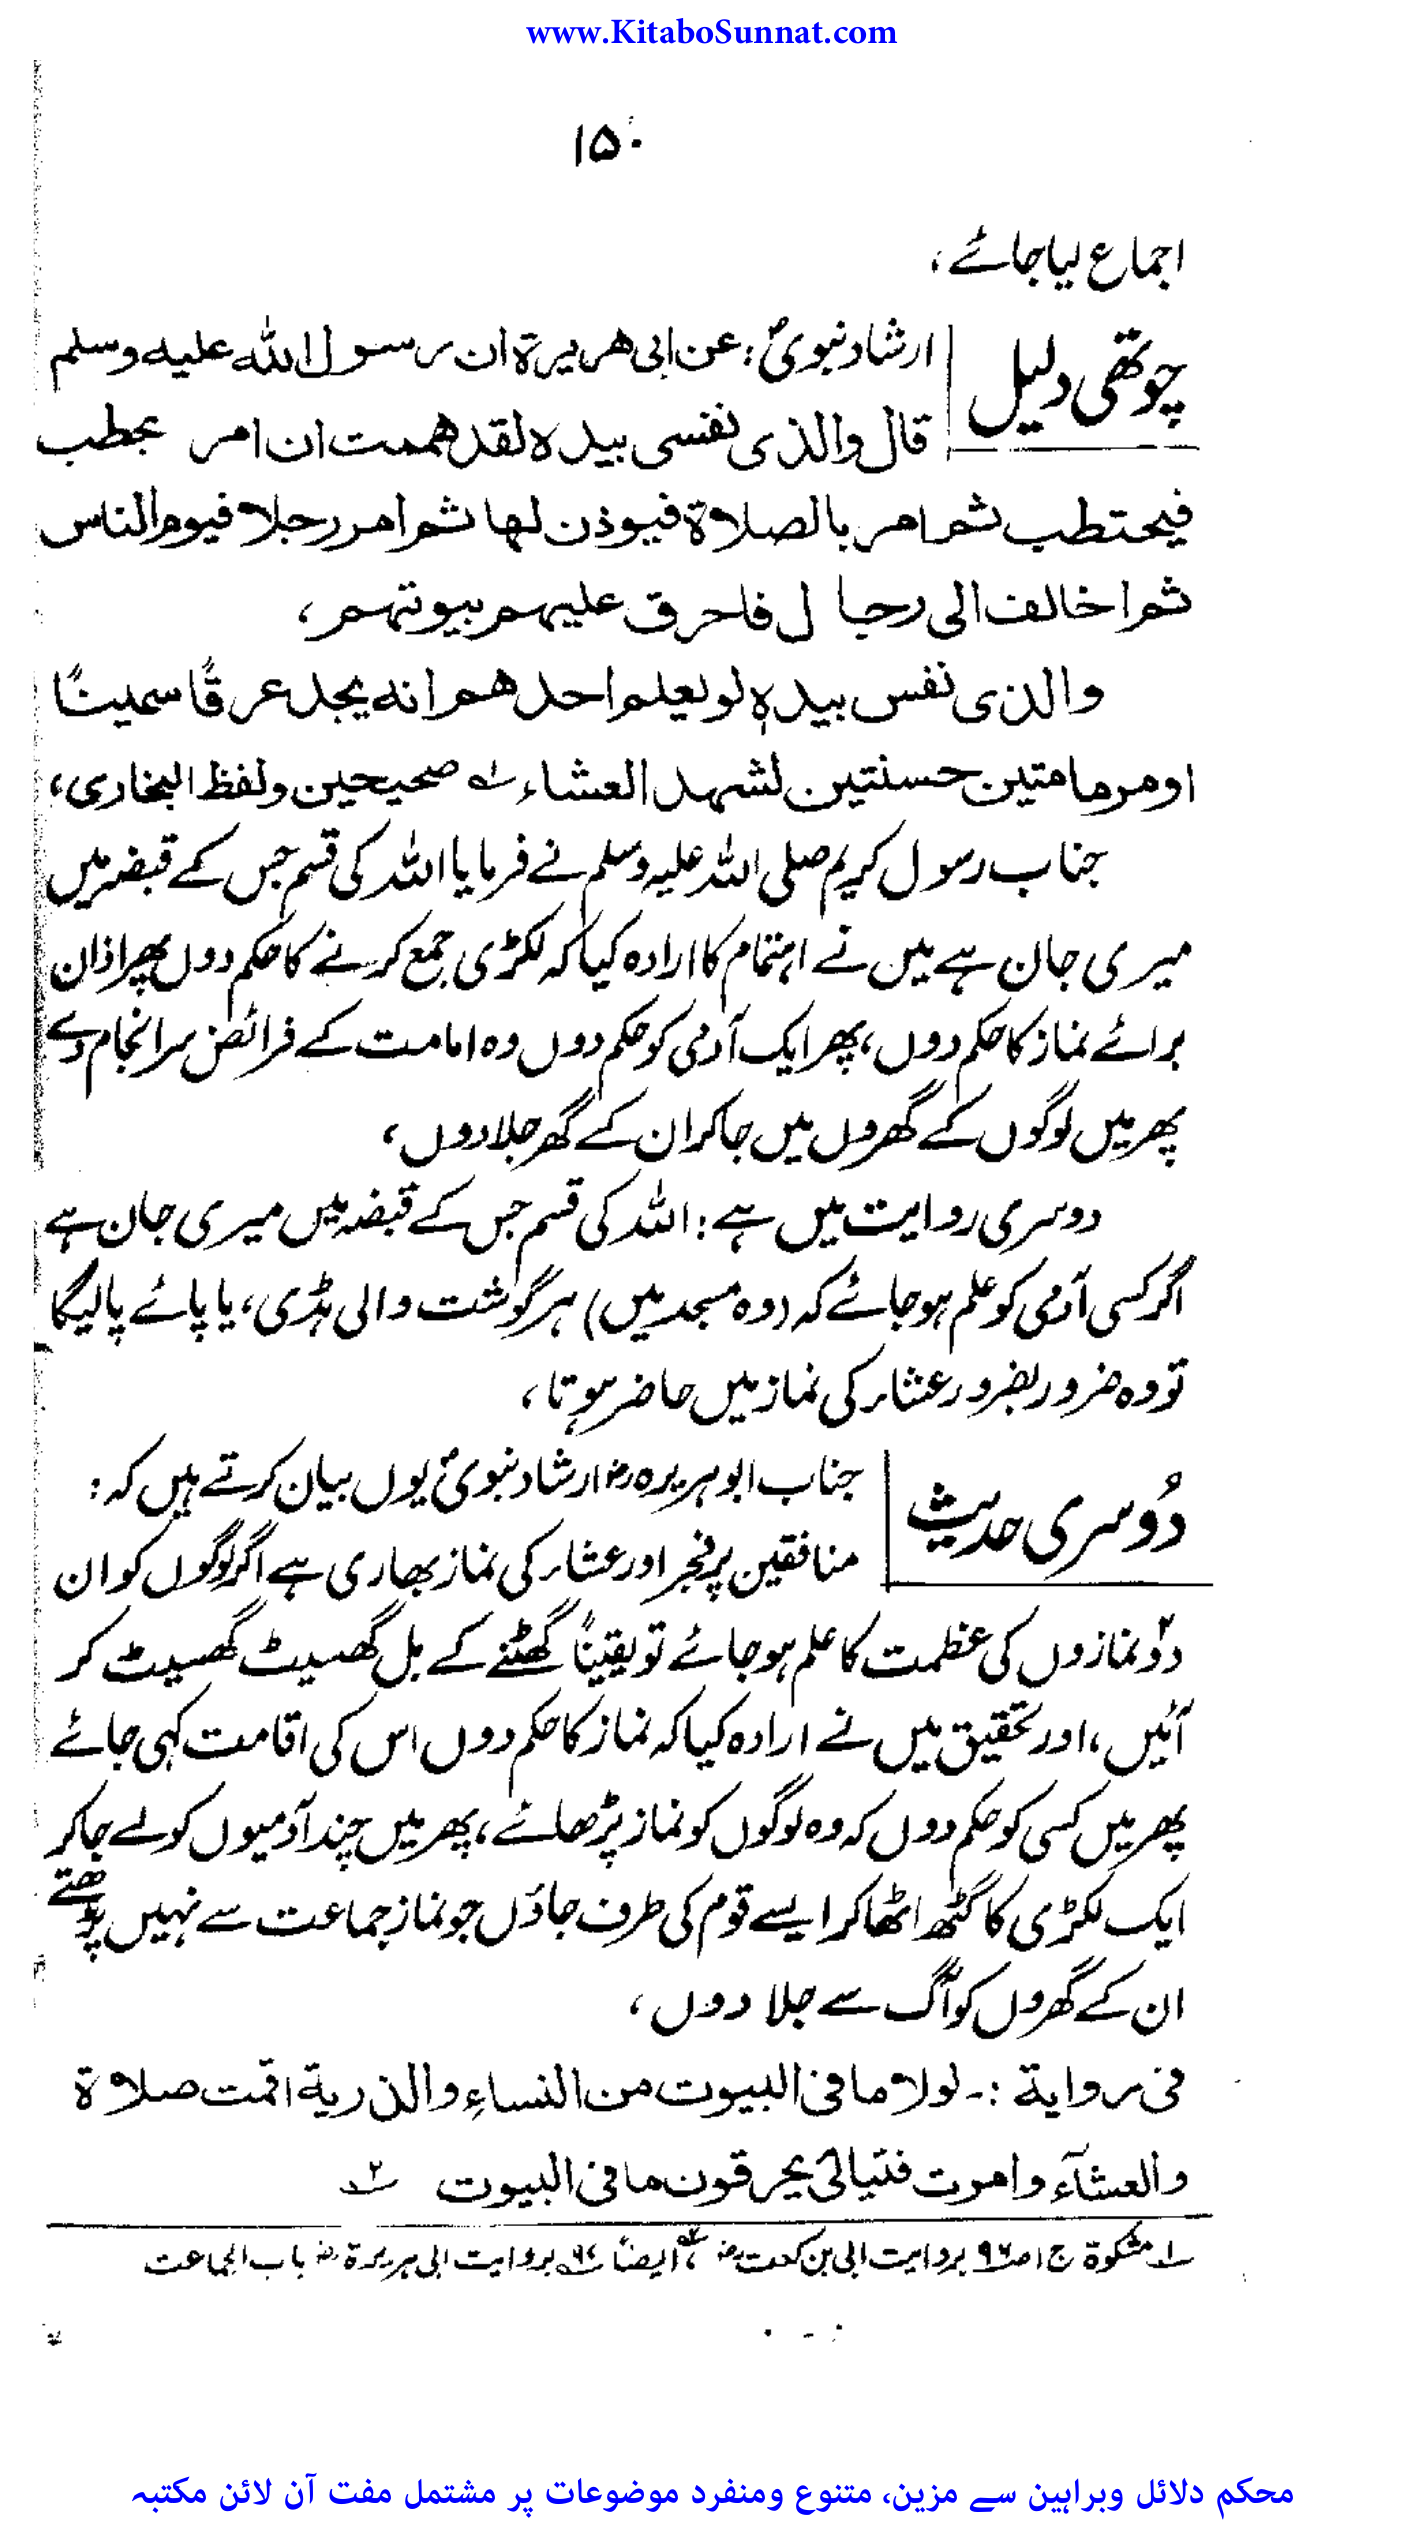 www.KitaboSunnat.com
۱۵۰
اجماع لیا جائے،
چوتھی دلیل
ارشاد نبویؐ: عن ابی هریرة ان رسول الله علیه وسلم
قال والذی نفسی بیده لقد هممت ان امر بحطب
فیحتطب ثم امر بالصلاة فیوذن لها ثم امر رجلا فیوم الناس
ثم اخالف الی رجال فاحرق علیهم بیوتهم،
والذی نفس بیده لو یعلم احدهم انه یجد عرقًا سمینًا
او مرمامتین حسنتین لشهد العشاء ؎۱ صحیحین ولفظ البخاری،
جناب رسول کریم صلی اللہ علیہ وسلم نے فرمایا اللہ کی قسم جس کے قبضہ میں
میری جان ہے میں نے اہتمام کا ارادہ کیا کہ لکڑی جمع کرنے کا حکم دوں پھر اذان
برائے نماز کا حکم دوں، پھر ایک آدمی کو حکم دوں وہ امامت کے فرائض سرانجام دے
پھر میں لوگوں کے گھروں میں جا کر ان کے گھر جلا دوں،
دوسری روایت میں ہے: اللہ کی قسم جس کے قبضہ میں میری جان ہے
اگر کسی آدمی کو علم ہو جائے کہ (وہ مسجد میں) ہر گوشت والی ہڈی، یا پائے پالیگا
تو وہ ضرور بضرور عشاء کی نماز میں حاضر ہوتا،
دُوسری حدیث
جناب ابو ہریرہ رضؓ ارشاد نبویؐ یوں بیان کرتے ہیں کہ:
منافقین پر فجر اور عشاء کی نماز بھاری ہے اگر لوگوں کو ان
دو۲ نمازوں کی عظمت کا علم ہو جائے تو یقیناً گھٹنے کے بل گھسیٹ گھسیٹ کر
آئیں، اور تحقیق میں نے ارادہ کیا کہ نماز کا حکم دوں اس کی اقامت کہی جائے
پھر میں کسی کو حکم دوں کہ وہ لوگوں کو نماز پڑھائے، پھر میں چند آدمیوں کو لے جا کر
ایک لکڑی کا گٹھ اٹھا کر ایسے قوم کی طرف جاؤں جو نماز جماعت سے نہیں پڑھتے
ان کے گھروں کو آگ سے جلا دوں،
فی روایة :۔ لولا ما فی البیوت من النساءِ والذریة اقمت صلاة
والعشآء وامرت فتیانی یحرقون ما فی البیوت ؎۲
؎۱ مشکوة ج۱ ص۹۶ بروایت ابی بن کعب رضؓ، ؎۲ ایضاً ص۹۷ بروایت ابی ہریرة رضؓ باب الجماعت
محکم دلائل وبراہین سے مزین، متنوع ومنفرد موضوعات پر مشتمل مفت آن لائن مکتبہ